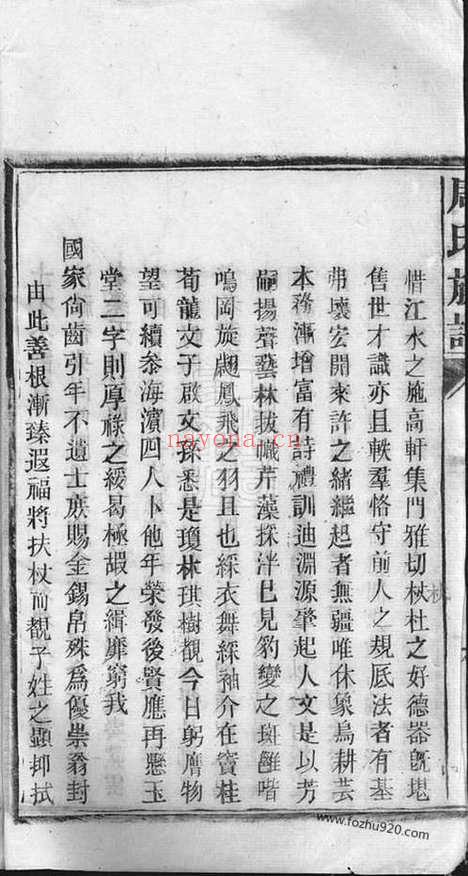 周氏族譜
惜江水之施高軒集門雅切杕杜之好德器旣堪
杕
售世才識亦且軼羣恪守前人之規厎法者有基
弗壞宏開來許之緒繼起者無疆唯休象鳥耕芸
本務漸增富有詩禮訓迪淵源肇起人文是以芳
嗣揚聲藝林拔幟芹藻採泮已見豹變之斑雝喈
鳴岡旋翽鳳飛之羽且也綵衣舞綵袖介在竇桂
荀龍文子啟文孫悉是瓊林琪樹覩今日躬膺物
望可續叅海濱四人卜他年榮發後賢應再懸玉
堂二字則厚祿之綏曷極嘏之緝靡窮我
國家尙齒引年不遺士庶賜金錫帛殊為優崇翁封
由此善根漸臻遐福將扶杖而觀子姓之顯抑拭
nayona.cn
www.fozhu920.com